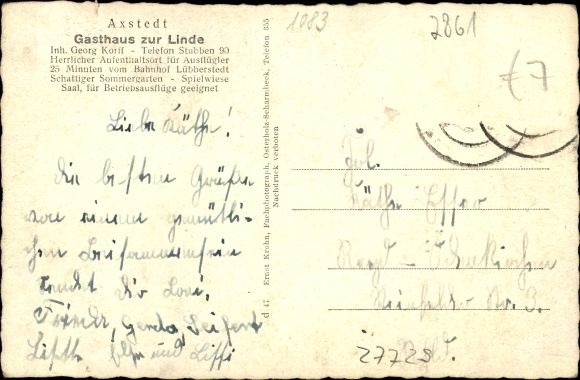 Axstedt
Gasthaus zur Linde
Inh. Georg Korff - Telefon Stubben 90
Herrlicher Aufenthaltsort für Ausflügler
25 Minuten vom Bahnhof Lübberstedt
Schattiger Sommergarten - Spielwiese
Saal, für Betriebsausflüge geeignet
1083
2861
£7
Liebe Käthe!
Die besten Grüße
von einem gemütli-
chen Beisammensein
sendet dir
Gerda Seifert
und
d 47 Ernst Krohn, Fachphotograph, Osterholz-Scharmbeck, Telefon 355
Nachdruck verboten
Frl.
Käthe Esser
Odenkirchen
Nr. 3.
27728